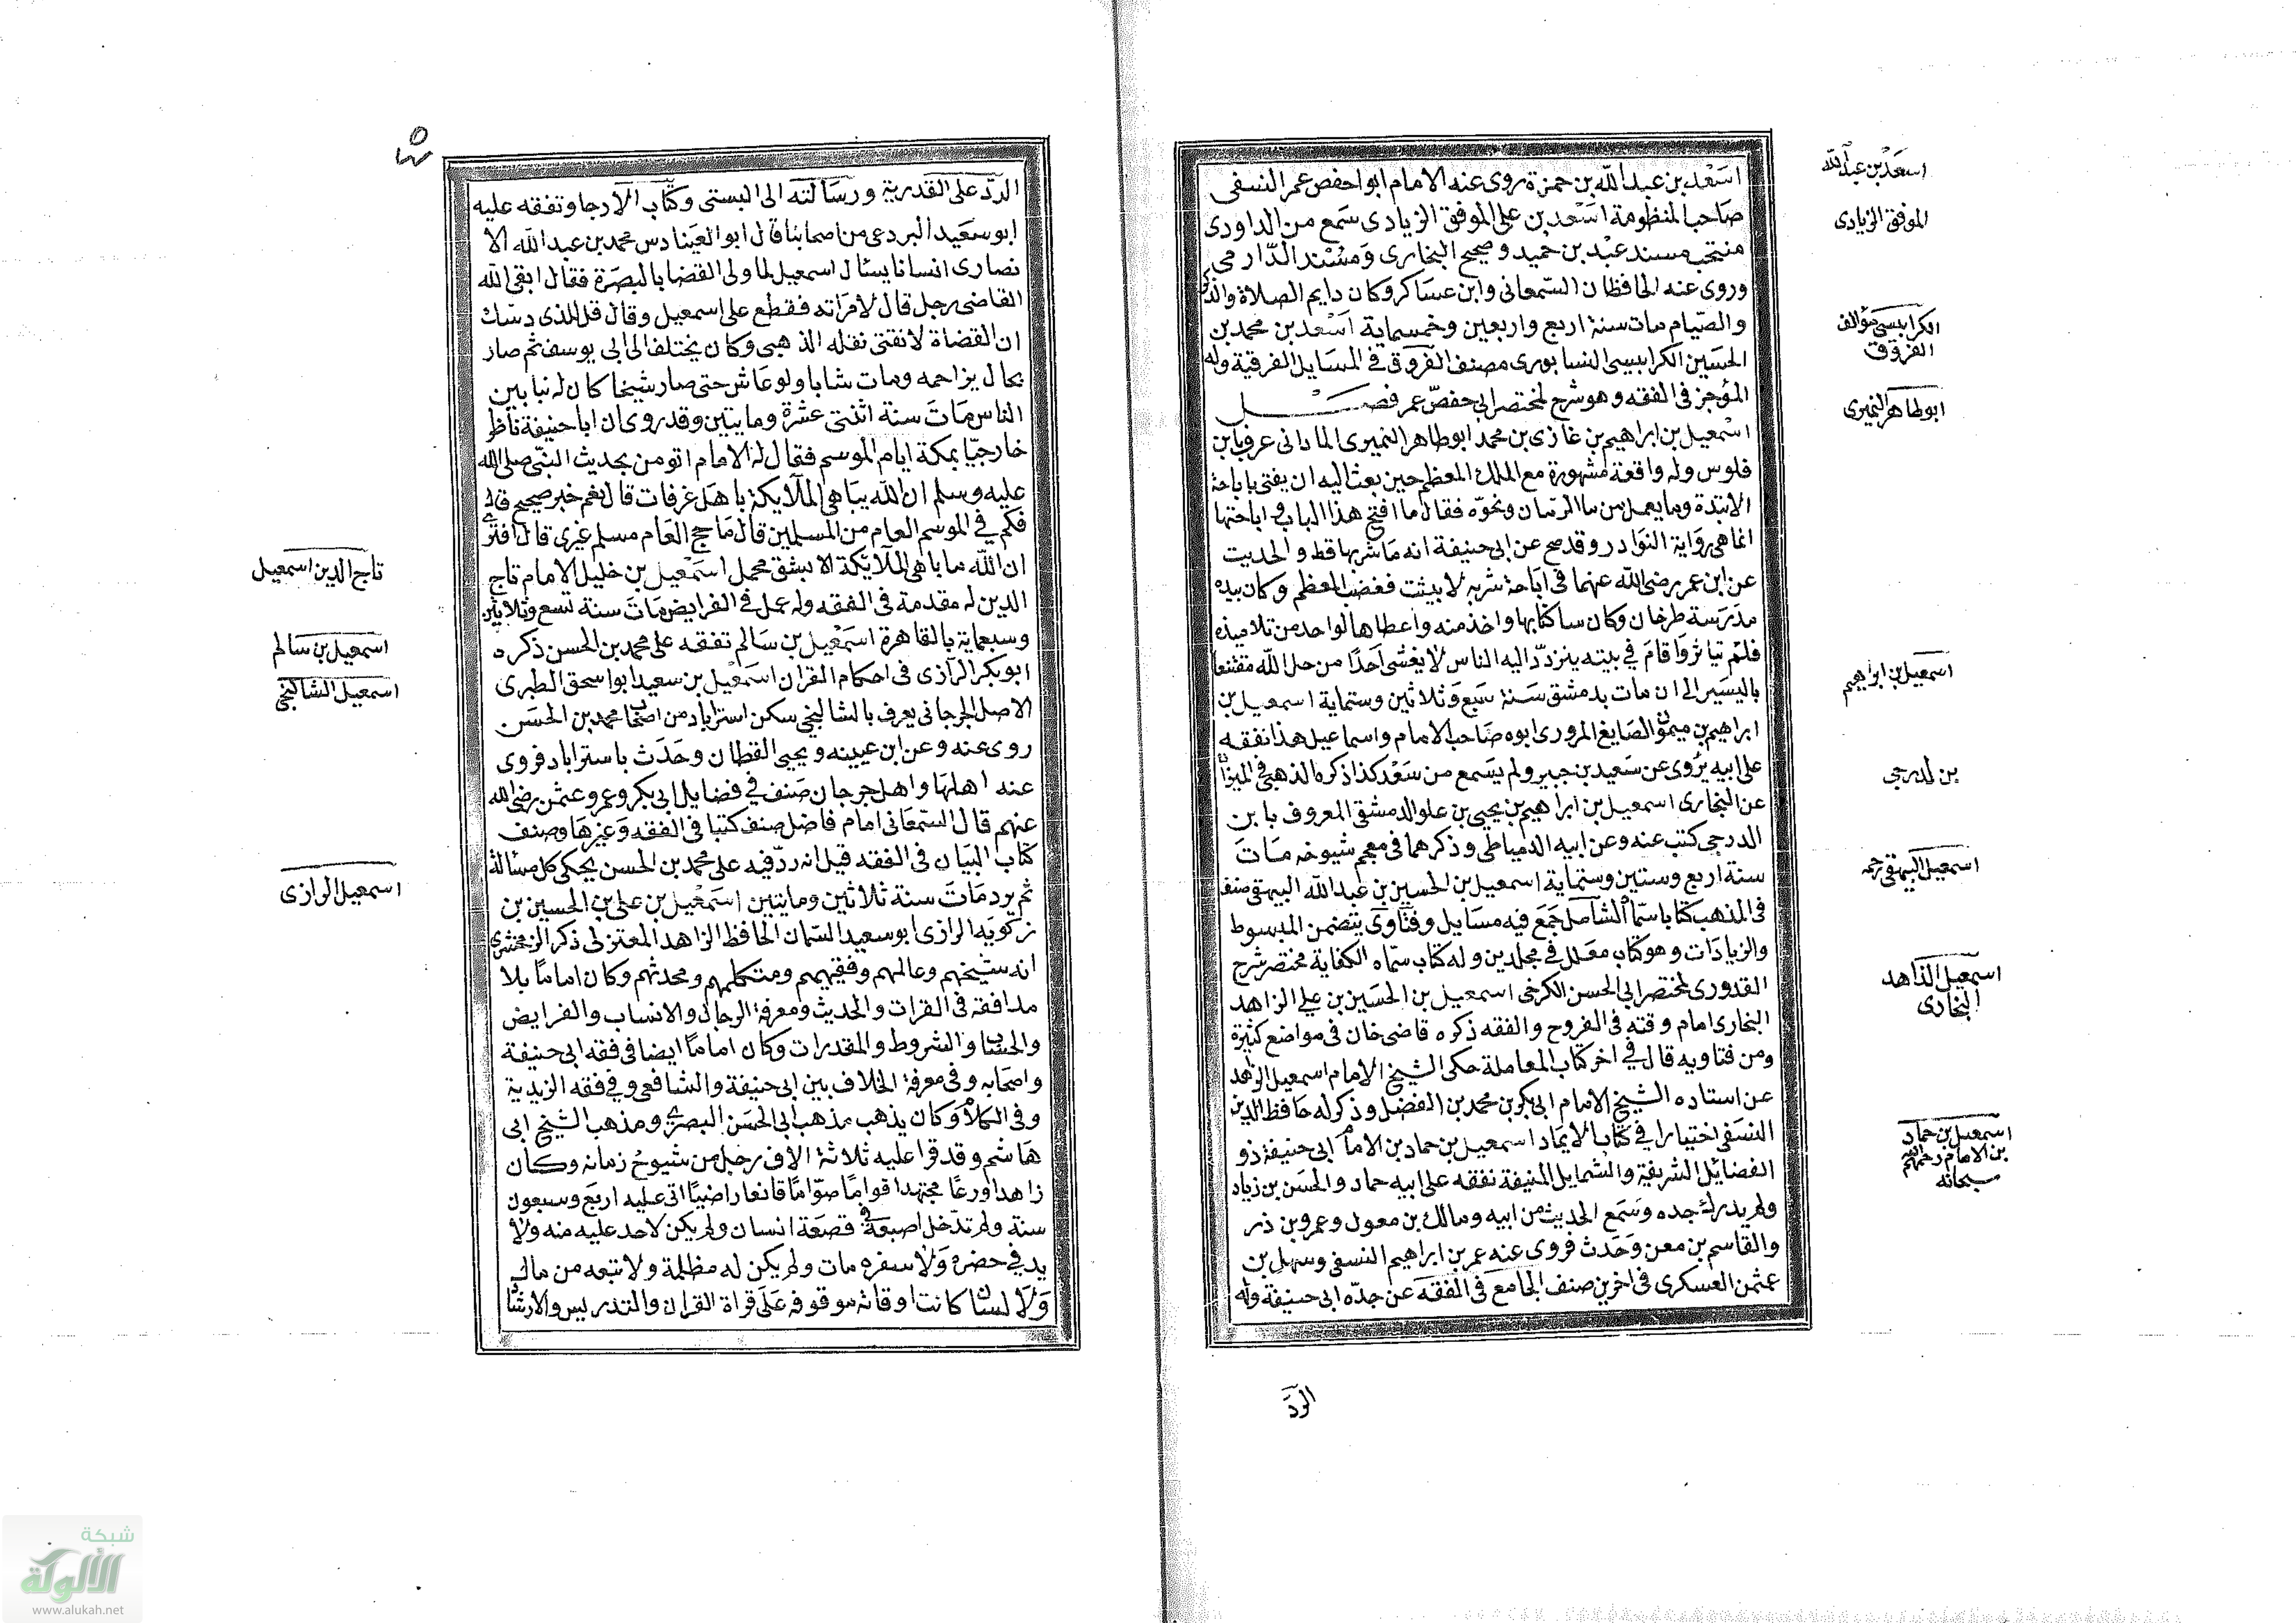 اسعد بن عبد الله بن حمزة روى عنه الامام ابوا حفص عمر النسفى
صاحب المنظومة اسعد بن على الموفق الزيادى سمع من الداودى
منتخب مسند عبد بن حميد وصحيح البخارى ومسند الدارمى
وروى عنه الحافظان السمعانى وابن عساكر وكان دايم الصلاة والذكر
والصيام مات سنة اربع واربعين وخمسماية اسعد بن محمد بن
الحسين الكرابيسى النسابورى مصنف الفروق فى المسايل الفرقية وله
المؤجز فى الفقه وهو شرح لمختصر ابى حفص عمر فصل
اسمعيل بن ابراهيم بن غازى بن محمد ابو طاهر النميرى الماردانى عرف بابن
فلوس وله واقعة مشهورة مع الملك المعظم حين بعث اليه ان يفتى باباحة
الانبذة وما يعمل من ما الرمان ونحوه فقال ما افتح هذا الباب واباحتها
انما هى رواية النوادر وقد صح عن ابى حنيفة انه ما شربها قط والحديث
عن ابن عمر رضى الله عنهما فى اباحة شربه لا يثبت فغضب المعظم وكان بيده
مدرسة طرخان وكان ساكنا بها واخذ منه واعطاها لواحد من تلاميذه
فلم تياثر واقام فى بيته يتردد اليه الناس لا يغشى احدا من حل الله مقتنعا
باليسير الى ان مات بدمشق سنة سبع وثلاثين وستماية اسمعيل بن
ابراهيم بن ميمون الصايغ المرورى ابوه صاحب الامام واسماعيل هذا تفقه
على ابيه يروى عن سعيد بن جبير ولم يسمع من سعد كذا ذكره الذهبى فى الميزان
عن البخارى اسمعيل بن ابراهيم بن يحيى بن علو الدمشقى المعروف بابن
الدرجى كتب عنه وعن ابيه الدمياطى وذكرهما فى معجم شيوخه مات
سنة اربع وستين وستماية اسمعيل بن الحسين بن عبد الله البيهقى صنف
فى المذهب كتابا سماه الشامل جمع فيه مسايل وفتاوى يتضمن المبسوط
والزيادات وهو كتاب معلل فى مجلدين وله كتاب سماه الكفاية مختصر شرح
القدورى لمختصر ابى الحسن الكرخى اسمعيل بن الحسين بن على الزاهد
البخارى امام وقته فى الفروح والفقه ذكره قاضى خان فى مواضع كثيرة
ومن فتاويه قال فى اخر كتاب المعاملة حكى الشيخ الامام اسمعيل الزاهد
عن استاده الشيخ الامام ابى بكر بن محمد بن الفضل وذكر له حافظ الدين
النسفى اختيارا فى كتاب الايماد اسمعيل بن حماد بن الامام ابى حنيفة ذو
الفضائل الشريفة والشمايل المنيفة تفقه على ابيه حماد والحسن بن زياد
ولم يدرك جده وسمع الحديث من ابيه ومالك بن معول وعمرو بن ذر
والقاسم بن معن وحدث فروى عنه عمر بن ابراهيم النسفى وسهل بن
عثمن العسكرى فى اخرين صنف الجامع فى الفقه عن جده ابى حنيفة وله
الرد
اسعد بن عبد الله
الموفق الزيادى
الكرابيسى مؤلف
الفروق
ابو طاهر النميرى
اسمعيل بن ابراهيم
بن لدرجى
اسمعيل البيهقى رحمه
اسمعيل الزاهد
البخارى
اسمعيل بن حماد
بن الامام رحمهم الله
سبحانه
الرد على القدرية ورسالته الى البستى وكتاب الارجا وتفقه عليه
ابو سعيد البردعى من اصحابنا قال ابو العينا دس محمد بن عبد الله الا
نصارى انسانا يسئال اسمعيل لما ولى القضا بالبصرة فقال ابقى الله
القاضى رجل قال لامراته فقطع على اسمعيل وقال قل للذى دسك
ان القضاة لا تفتى نقله الذهبى وكان يختلف الى ابى يوسف ثم صار
بحال يزاحمه ومات شابا ولو عاش حتى صار شيخا كان له نبا بين
الناس مات سنة اثنتى عشرة ومايتين وقد روى ان ابا حنيفة ناظر
خارجيا بمكة ايام الموسم فقال له الامام اتو من بحديث النبى صلى الله
عليه وسلم ان الله يباهى الملايكة باهل عرفات قال نعم خبر صحيح قال
فكم فى الموسم العام من المسلمين قال ما حج العام مسلم غيرى قال افترى
ان الله ما باهى الملايكة الا بشق محمل اسمعيل بن خليل الامام تاج
الدين له مقدمة فى الفقه وله عمل فى الفرايض مات سنة تسع وثلاثين
وسبعماية بالقاهرة اسمعيل بن سالم تفقه على محمد بن الحسن ذكره
ابو بكر الرازى فى احكام القران اسمعيل بن سعيد ابوا سحق الطبرى
الاصل الجرجانى يعرف بالشالنجى سكن استراباد من اصحاب محمد بن الحسن
روى عنه وعن ابن عيينه ويحيى القطان وحدث باستراباد فروى
عنه اهلها واهل جرجان صنف فى فضايل ابى بكر وعمر وعثمن رضى الله
عنهم قال السمعانى امام فاضل صنف كتبا فى الفقه وغيرها وصنف
كتاب البيان فى الفقه قيل انه رد فيه على محمد بن الحسن يحكى كل مسألة
ثم يرد مات سنة ثلاثين ومايتين اسمعيل بن على بن الحسين بن
زكويه الرازى ابو سعيد السمان الحافظ الزاهد المعتزلى ذكر الزمخشرى
انه شيخهم وعالمهم وفقيههم ومتكلمهم ومحدثهم وكان اماما بلا
مدافقة فى القرات والحديث ومعرفة الرجال والانساب والفرايض
والحساب والشروط والمقدرات وكان اماما ايضا فى فقه ابى حنيفة
واصحابه وفى معرفة الخلاف بين ابى حنيفة والشافعى وفى فقه الزيدية
وفى الكلام وكان يذهب مذهب ابى الحسن البصرى ومذهب الشيخ ابى
هاشم وقد قرا عليه ثلاثة الاف رجل من شيوخ زمانه وكان
زاهدا ورعا مجتهدا قواما صواما قانعا راضيا اتى عليه اربع وسبعون
سنة ولم تدخل اصبعه فى قصعة انسان ولم يكن لاحد عليه منه ولا
يد فى حضره ولا سفره مات ولم يكن له مظلمة ولا تبعه من مال
ولا لسان كانت اوقاته موقوفه على قراة القران والتدريس والارشاد
تاج الدين اسمعيل
اسمعيل بن سالم
اسمعيل الشالنجى
اسمعيل الرازى
شبكة
الألوكة
www.alukah.net